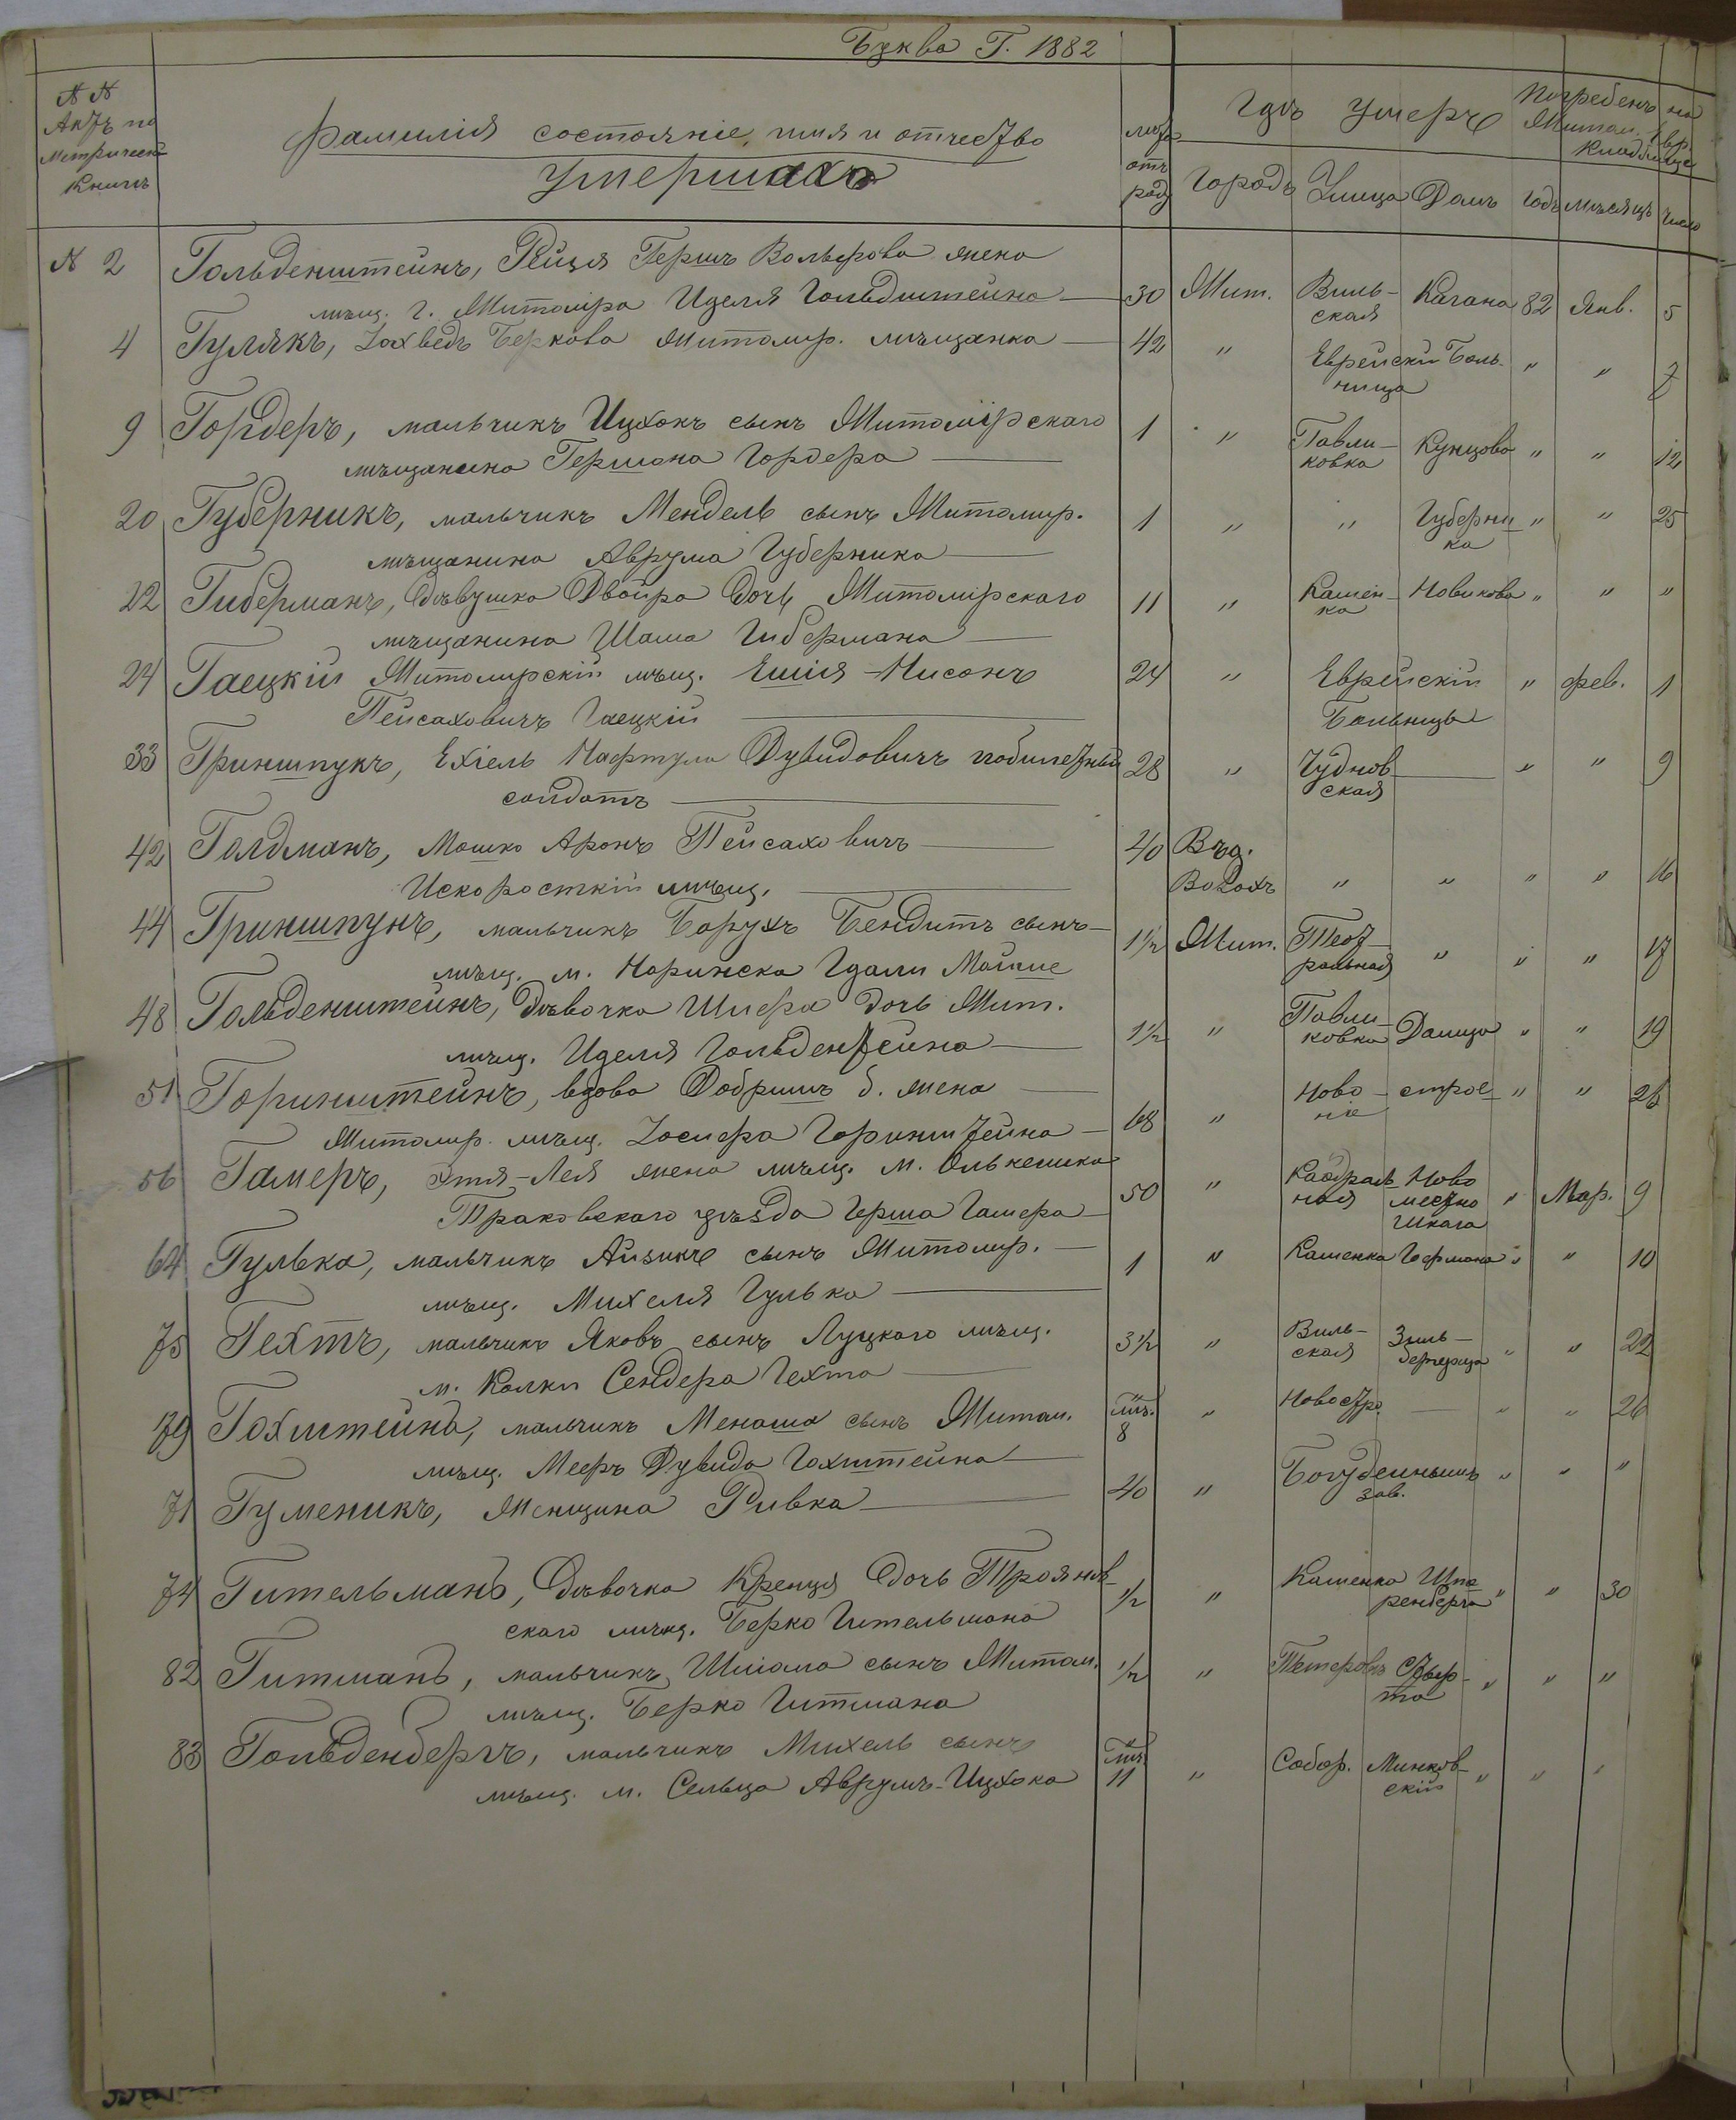 Буква Г. 1882
№ №
Актъ по
Метрическ.
Книгѣ
Фамилія состояніе, имя и отчество
умершахъ
лѣта
отъ
роду
Гдѣ умеръ
Погребенъ на
Житом. Евр.
Кладбище
Городъ Улица Домъ годъ мѣсяцъ число
№ 2 Гольденштейнъ, Рейця Гершъ Вольфова жена
мѣщ. г. Житоміра Иделя Гольдштейна 30 Жит. Виль-ская Кагана 82 Янв. 5
4 Гулякъ, Захведъ Беркова Житомир. мѣщанка 42 " Еврейскі Боль-ница " " 7
9 Гордеръ, мальчикъ Ицхокъ сынъ Житомірскаго
мѣщанина Гершона Гордера 1 " Павли-ковка Кунцова " " 12
20 Губерникъ, мальчикъ Мендель сынъ Житомир.
мѣщанина Аврума Губерника 1 " " Губерни-ка " " 25
22 Гиберманъ, дѣвушка Двойра дочь Житомірскаго
мѣщанина Шама Гибермана 11 " Кашен-ка Новикова " " "
24 Гаецкій Житомирскій мѣщ. Ешія-Нисонъ
Пейсаховичъ Гаецкій 24 " Еврейскій Больницы " фев. 1
33 Гриншпукъ, Ехіель Нафтула Дувидовичъ
солдатъ 28 " Чуднов-ская " " 9
42 Голдманъ, Мошко Аронъ Пейсаховичъ
Искоросткій мѣщ. 40 Вѣд. " " " " 16
44 Гриншпунъ, мальчикъ Борухъ Бендитъ сынъ
мѣщ. м. Норинска Гдали Мошие 1½ Жит. Теат-ральная " " " 17
48 Гольденштейнъ, дѣвочка Шифра дочь Жит.
мѣщ. Иделя Гольденштейна 1½ " Павли-ковка Данца " " 19
51 Горинштейнъ, вдова Добришъ б. жена
Житомир. мѣщ. Іосифа Горинштейна 68 " Ново-строе-ніе " " 26
56 Гамеръ, Этя-Лея жена мѣщ. м. Олькеника
Траковскаго уѣзда Герша Гамера 50 " Кафдраль-ная Ново " Мар. 9
64 Гулька, мальчикъ Айзикъ сынъ Житомир.
мѣщ. Михеля Гулька 1 " Кашенка Гофмана " " 10
75 Гехтъ, мальчикъ Яковъ сынъ Луцкаго мѣщ.
м. Колки Сендера Гехта 3½ " Виль-ская Зиль-берберца " " 22
179 Гохштейнъ, мальчикъ Менаша сынъ Житом.
мѣщ. Мееръ Дувида Гохштейна мѣ. 8 " Новостро. " " 26
71 Гуменикъ, женщина Ривка 40 " зав. " " "
74 Гительманъ, дѣвочка Кренця дочь Троянов-
скаго мѣщ. Берко Гительмана ½ " Кашенка " " 30
82 Гитманъ, мальчикъ Шліома сынъ Житом.
мѣщ. Берко Гитмана ½ " Тетеровъ " " "
83 Гольденбергъ, мальчикъ Михель сынъ
мѣщ. м. Сельца Аврумъ-Ицхока мѣ. 11 " Собор. Минков-скій " " "